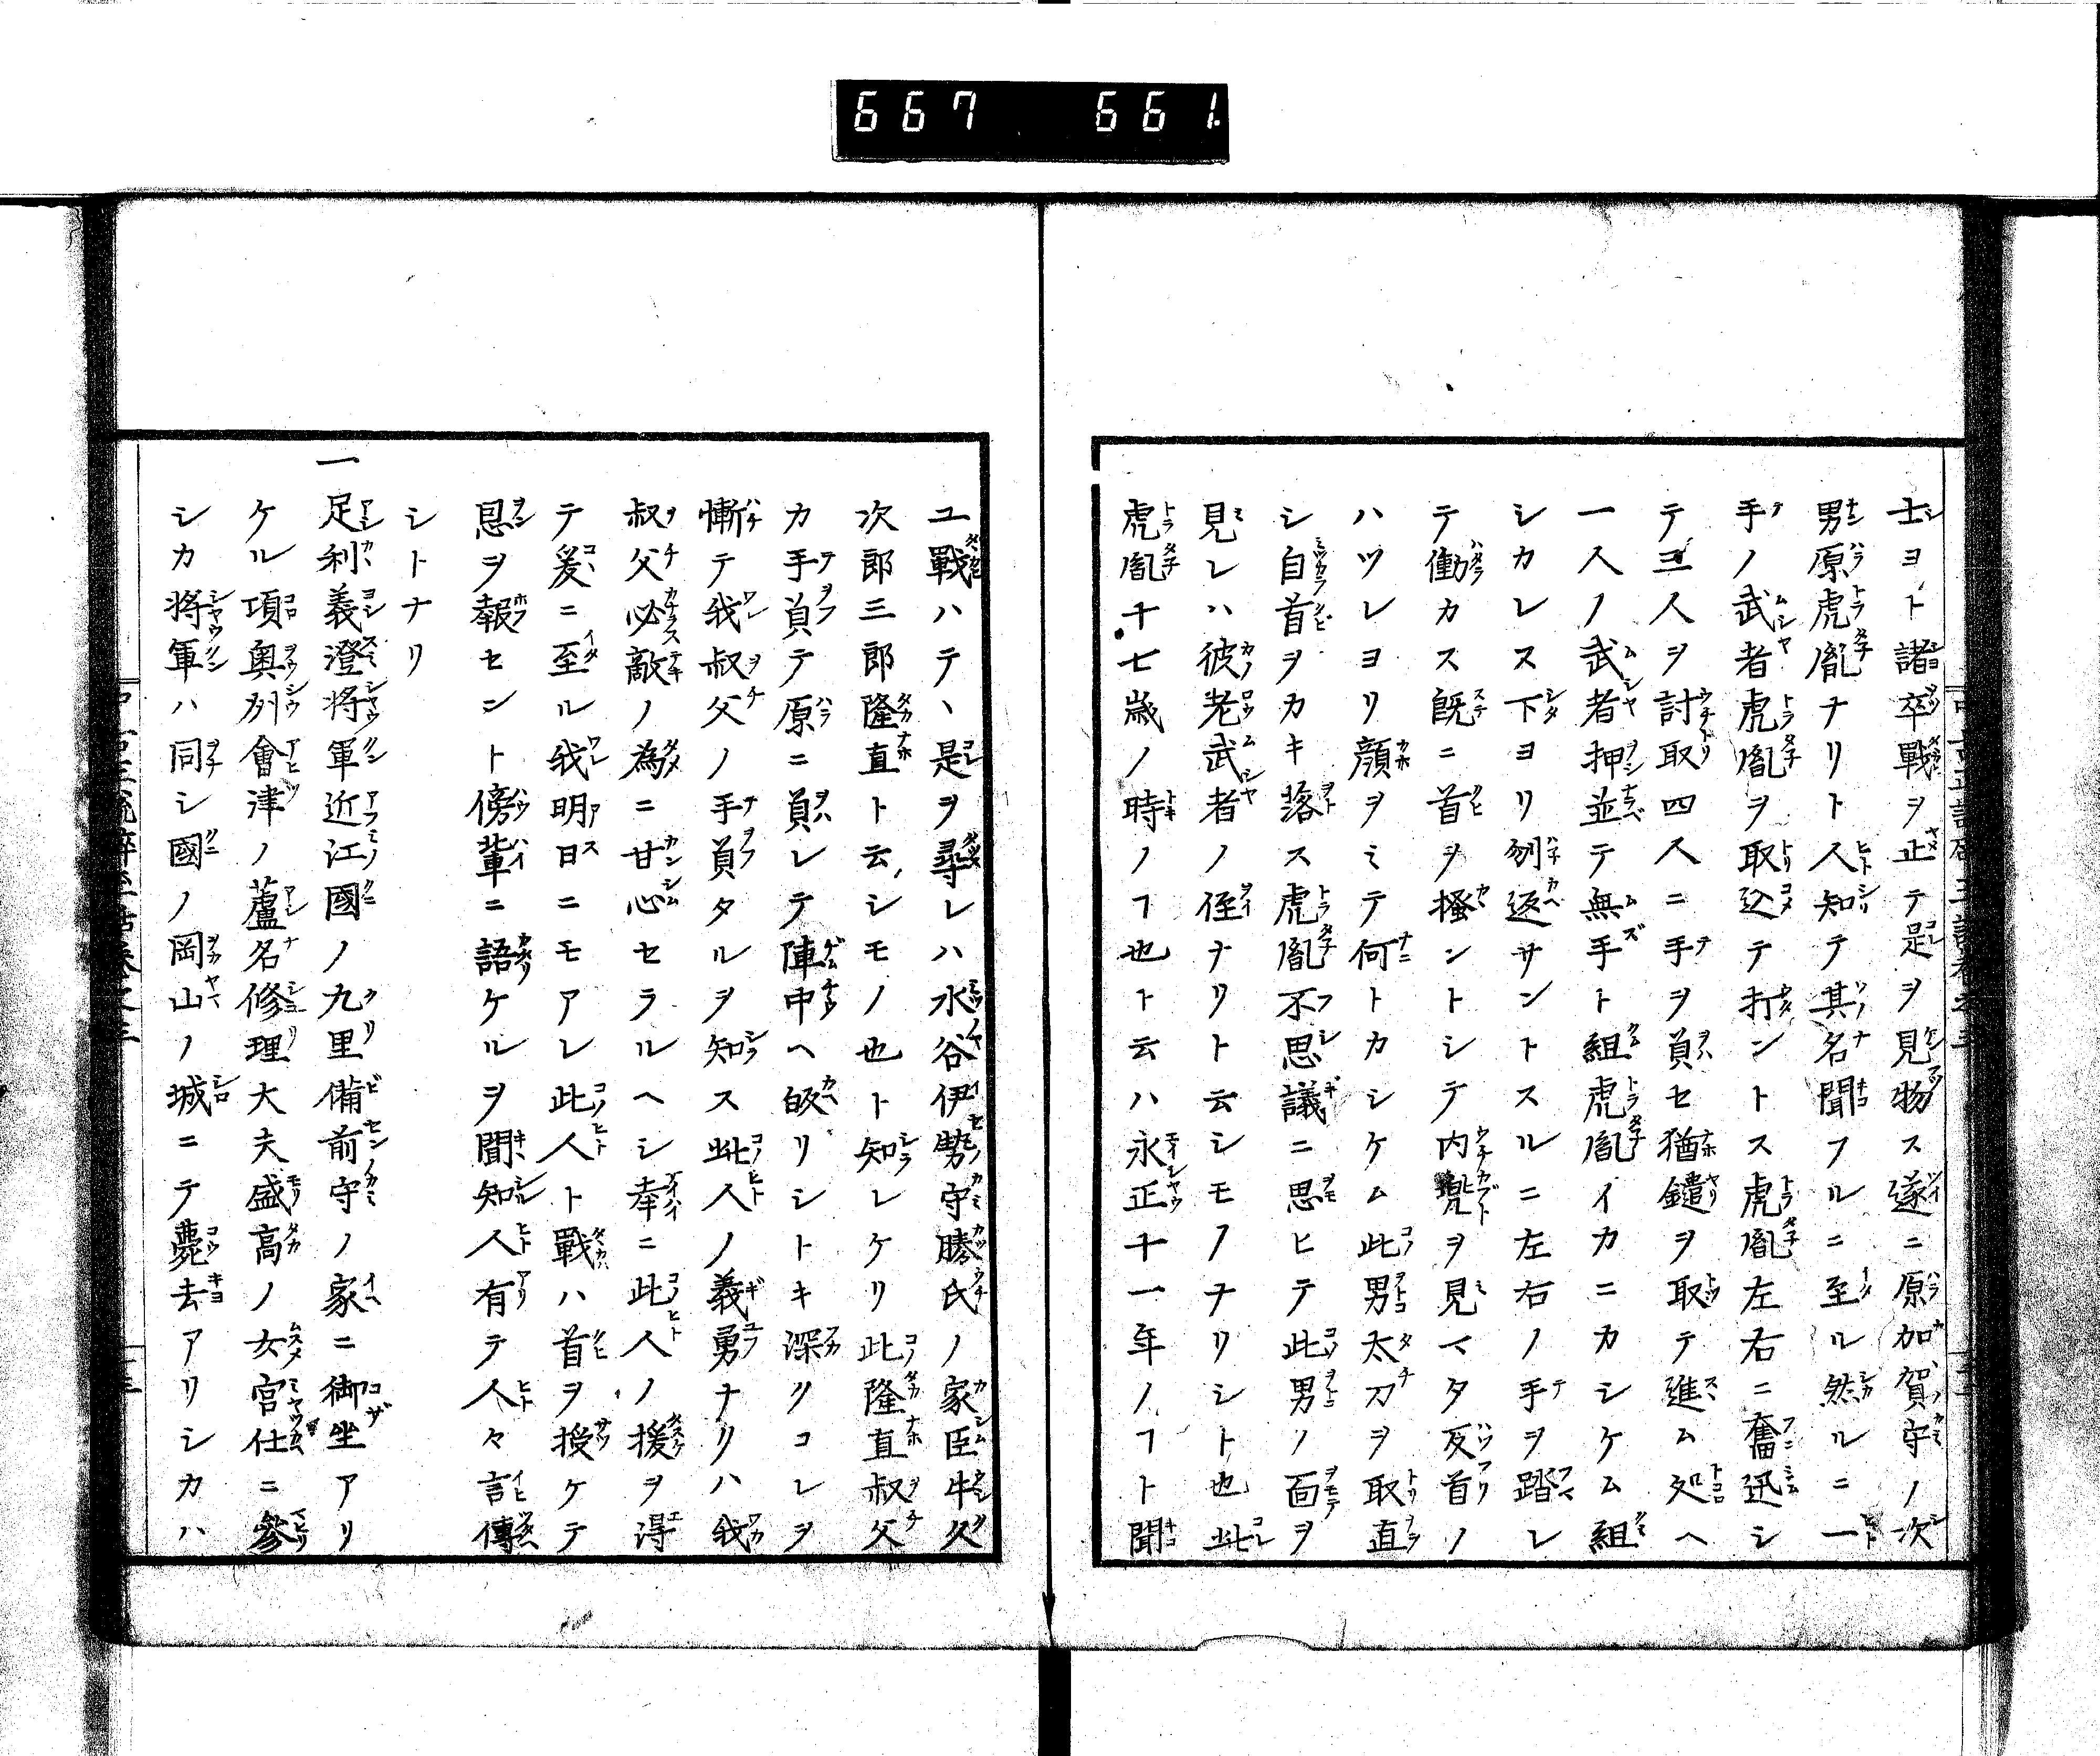 667 661.
士ヨト諸卒戰ヲ止テ是ヲ見物ス遂ニ原加賀守ノ次
男原虎胤ナリト人知テ其名聞フルニ至ル然ルニ一
手ノ武者虎胤ヲ取込テ打ントス虎胤左右ニ奮迅シ
テ三人ヲ討取四人ニ手ヲ負セ猶鑓ヲ取テ進ム処ヘ
一人ノ武者押並テ無手ト組虎胤イカニカシケム組
シカレス下ヨリ刎返サントスルニ左右ノ手ヲ踏レ
テ働カス既ニ首ヲ搔ントシテ内兜ヲ見マタ反首ノ
ハツレヨリ顔ヲミテ何トカシケム此男太刀ヲ取直
シ自首ヲカキ落ス虎胤不思議ニ思ヒテ此男ノ面ヲ
見レハ彼老武者ノ侄ナリト云シモノナリシト也此
虎胤十七歳ノ時ノヿ也ト云ハ永正十一年ノヿト聞
ユ戰ハテヽ是ヲ尋レハ水谷伊勢守勝氏ノ家臣牛久
次郎三郎隆直ト云シモノ也ト知レケリ此隆直叔父
カ手負テ原ニ負レテ陣中ヘ皈リシトキ深クコレヲ
慚テ我叔父ノ手負タルヲ知ス此人ノ義勇ナリハ我
叔父必敵ノ為ニ甘心セラルヘシ幸ニ此人ノ援ヲ得
テ爰ニ至ル我明日ニモアレ此人ト戰ハ首ヲ授ケテ
恩ヲ報セント傍輩ニ語ケルヲ聞知人有テ人々言傳
シトナリ
一足利義澄將軍近江國ノ九里備前守ノ家ニ御坐アリ
ケル項奥列會津ノ蘆名修理大夫盛高ノ女宮仕ニ參
シカ將軍ハ同シ國ノ岡山ノ城ニテ薨去アリシカハ